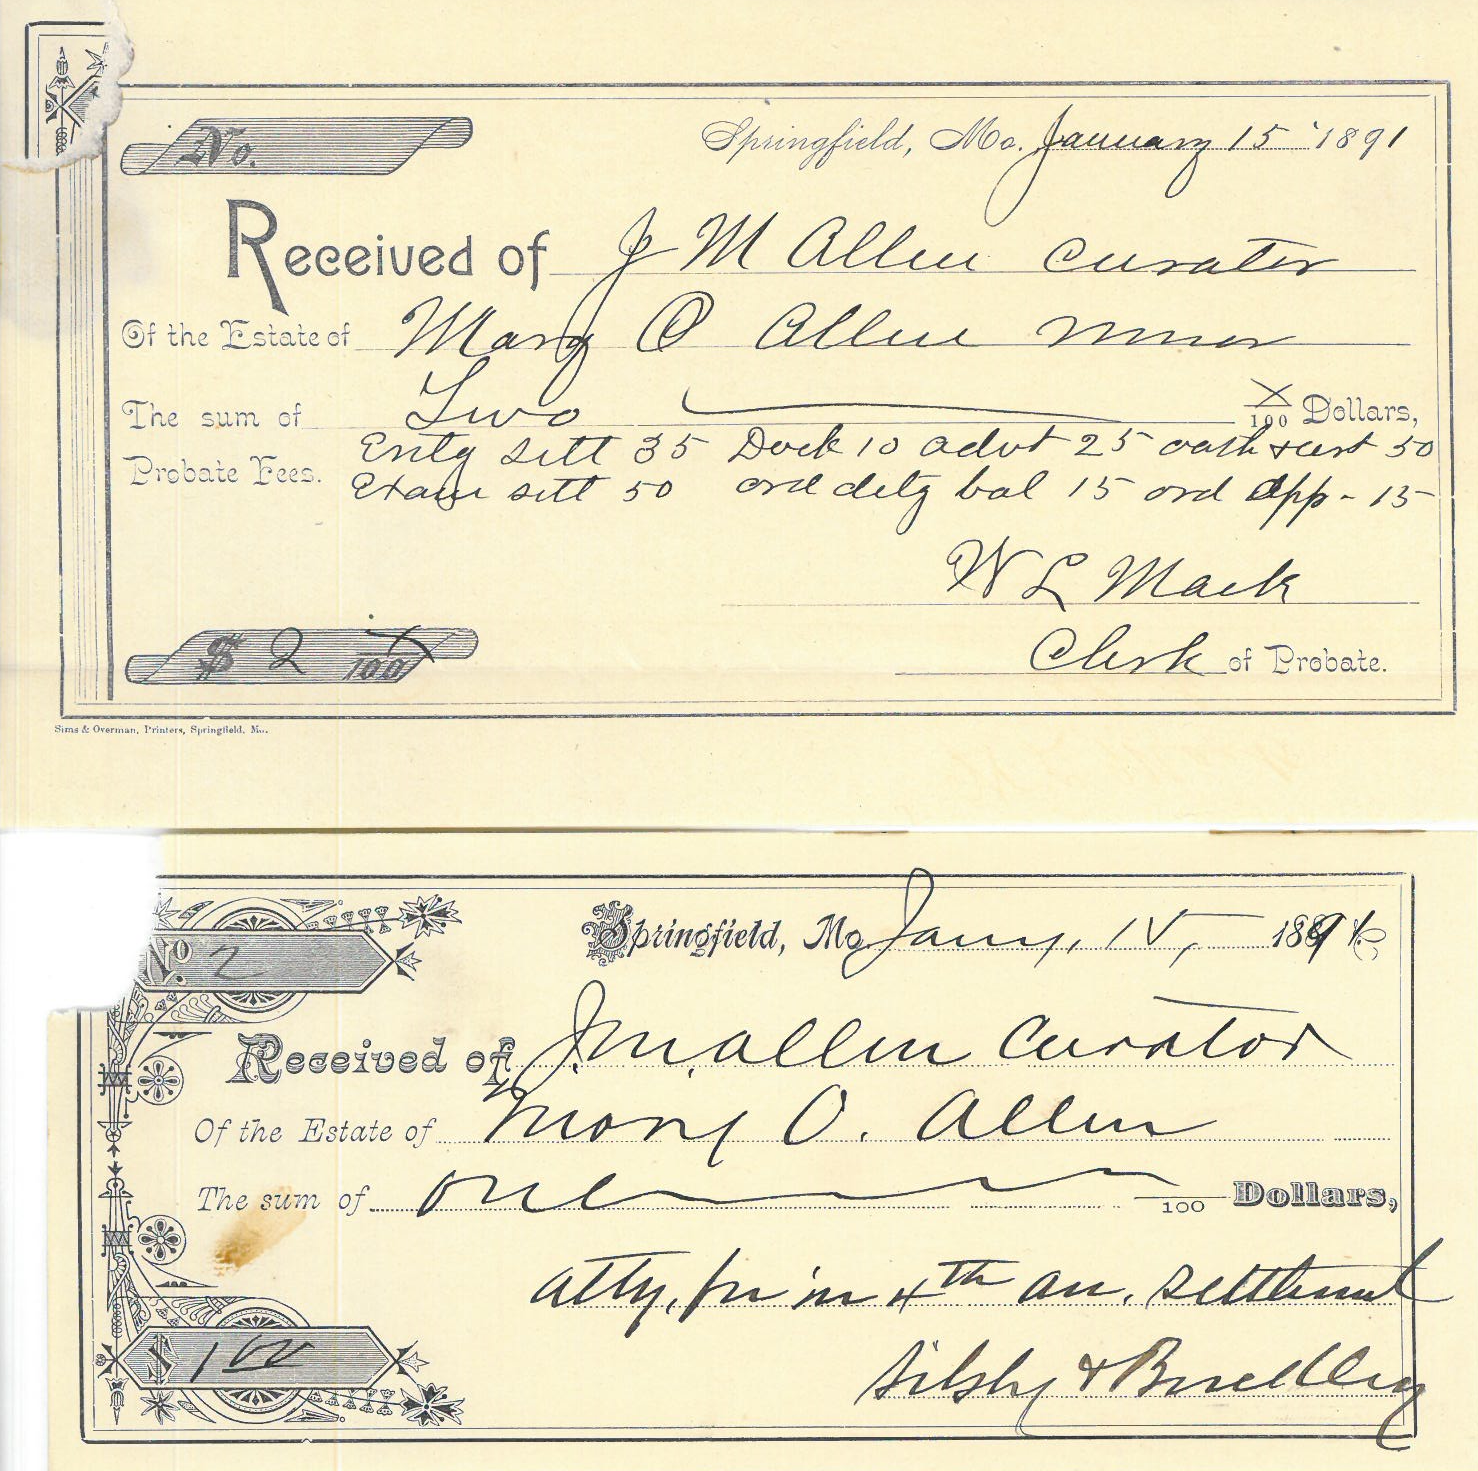 No.
Springfield, Mo. January 15 1891
Received of J M Allen Curator
Of the Estate of Mary O Allen minor
The sum of Two X/100 Dollars,
Probate Fees. Entg sett 35 Dock 10 advt 25 oath & cert 50
Exam sett 50 ord detg bal 15 ord app - 15
W L Mack
$ 2 X/100
Clerk of Probate.
Sims & Overman, Printers, Springfield, Mo.
No. 2
Springfield, Mo Jany. 15, 1891
Received of J. M. Allen Curator
Of the Estate of Mary O. Allen
The sum of One /100 Dollars,
atty, in 4th an. settlement
$ 1 00
Silsby &